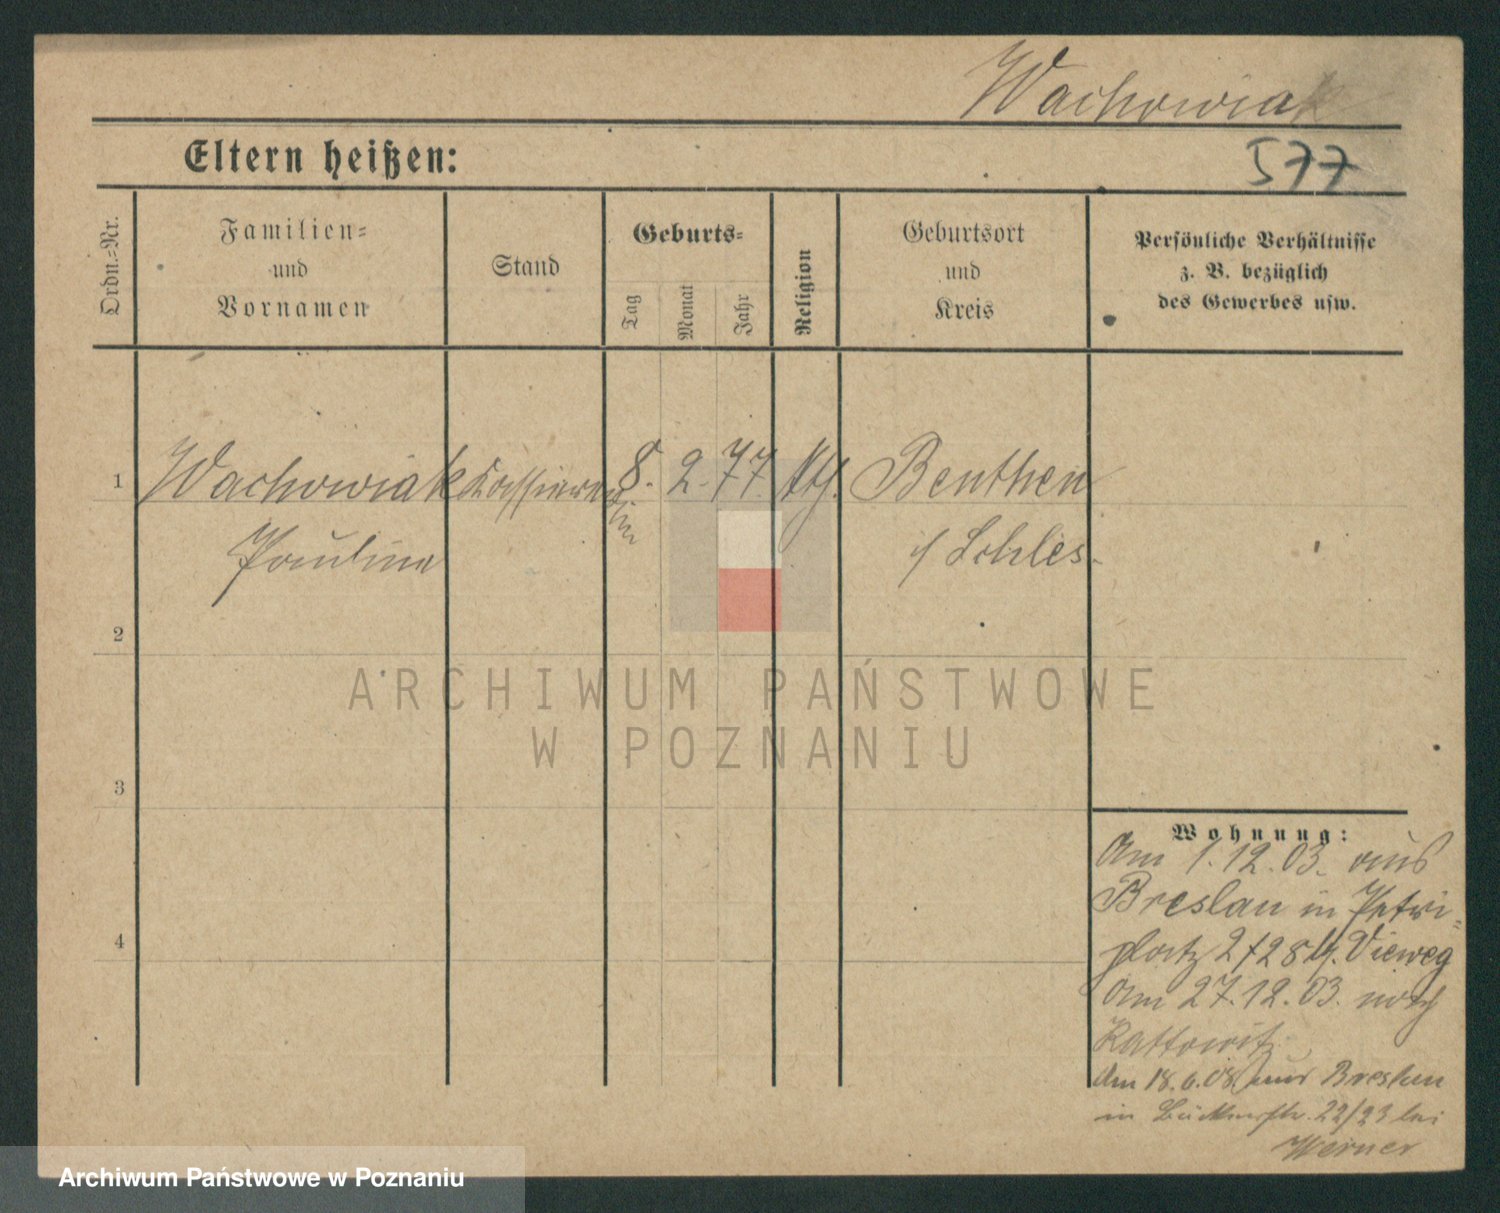 Wachowiak
Eltern heißen:
577
Ordn.=Nr.
Familien=
und
Vornamen
Stand
Geburts=
Tag
Monat
Jahr
Religion
Geburtsort
und
Kreis
Persönliche Verhältnisse
z. B. bezüglich
des Gewerbes usw.
1
Wachowiak
8. 2. 77. kth. Beuthen
Pauline
i/ Schles.
2
3
4
Wohnung:
Am 1.12.03. aus
Breslau in Petri-
platz 2 Vieweg
Am 27.12.03. nach
Kattowitz
Am 18.6.08 aus Breslau
in 22/23 bei
Werner
ARCHIWUM PAŃSTWOWE
W POZNANIU
Archiwum Państwowe w Poznaniu